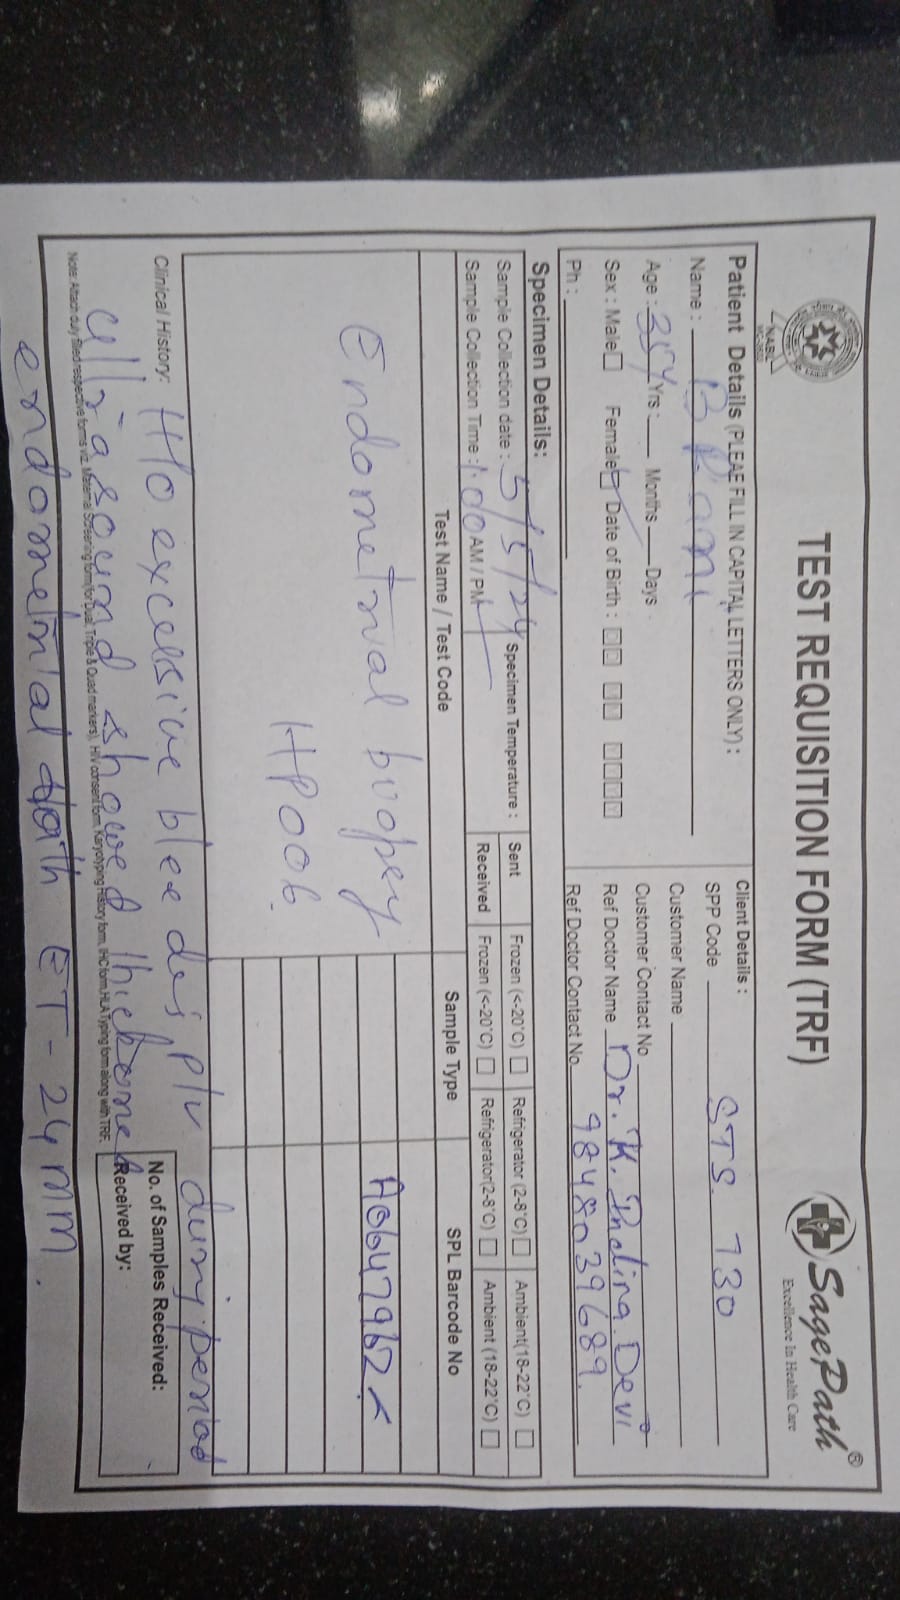 TEST REQUISITION FORM (TRF)
SagePath®
Excellence In Health Care
NABL
Patient Details (PLEAE FILL IN CAPITAL LETTERS ONLY) :
Name : B Rani
Age : 35y Yrs : Months Days
Sex : Male Female Date of Birth :
Ph :
Client Details :
SPP Code STS 730
Customer Name
Customer Contact No
Ref Doctor Name Dr. K. Devi
Ref Doctor Contact No. 9848039689.
Specimen Details:
Sample Collection date : 5/5/24 Specimen Temperature : Sent Frozen (<-20°C) Refrigerator (2-8°C) Ambient(18-22°C)
Sample Collection Time : 1:00 AM / PM Received Frozen (<-20°C) Refrigerator(2-8°C) Ambient (18-22°C)
Test Name / Test Code Sample Type SPL Barcode No
Endometrial biopsy A0647962
HP006.
Clinical History: H/o excessive bleeding p/v during period
ultrasound showed thickened
Note: Attach duly filled respective forms viz. Maternal Screening form (for Dual, Triple & Quad markers), HIV consent form, Karyotyping History form, IHC form, HLA Typing form along with TRF.
endometrial with ET - 24 mm.
No. of Samples Received:
Received by: